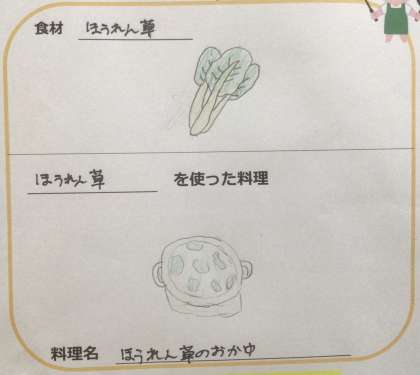 食材 ほうれん草
ほうれん草 を使った料理
料理名 ほうれん草のおかゆ